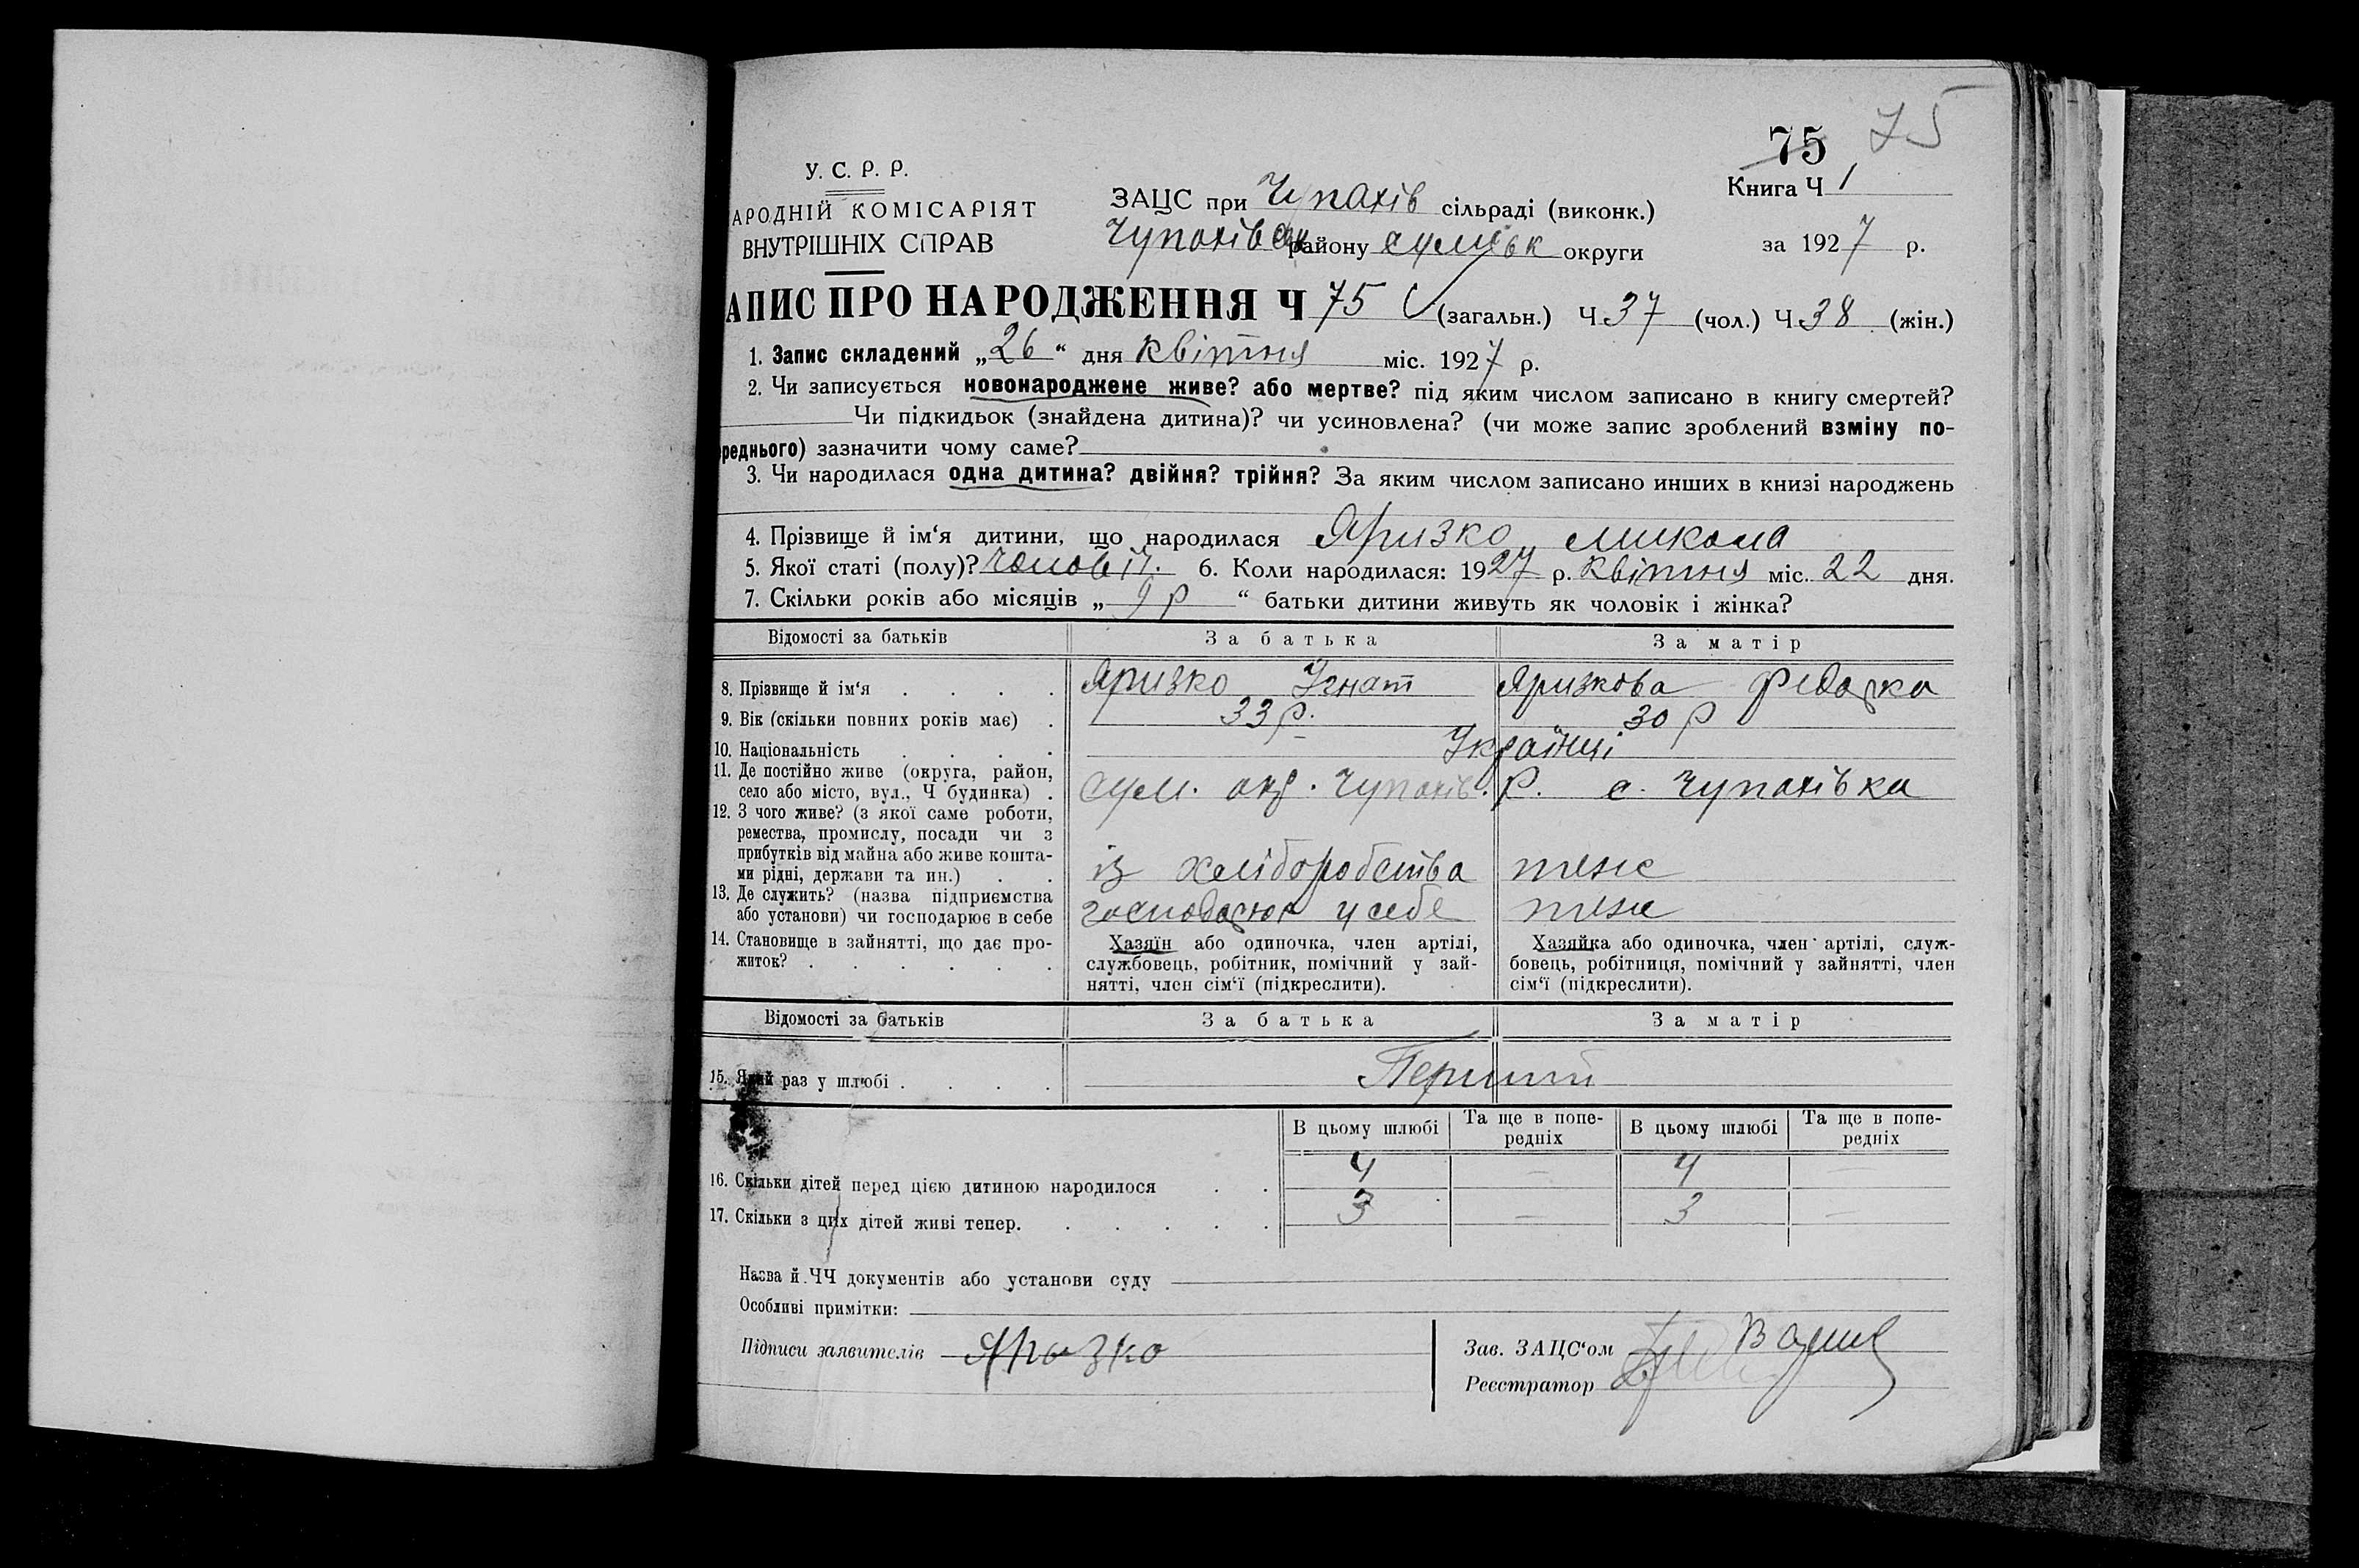 75 75
У. С. Р. Р.
Книга Ч 1
АРОДНІЙ КОМІСАРІЯТ
ЗАЦС при Чупахів сільраді (виконк.)
ВНУТРІШНІХ СПРАВ
Чупахівськ району сумськ округи
за 1927 р.
АПИС ПРО НАРОДЖЕННЯ Ч 75 (загальн.) Ч. 37 (чол.) Ч. 38 (жін.)
1. Запис складений „26“ дня квітня міс. 1927 р.
2. Чи записується новонароджене живе? або мертве? під яким числом записано в книгу смертей?
Чи підкидьок (знайдена дитина)? чи усиновлена? (чи може запис зроблений взміну по-
реднього) зазначити чому саме?
3. Чи народилася одна дитина? двійня? трійня? За яким числом записано инших в книзі народжень
4. Прізвище й ім‘я дитини, що народилася Яризко микола
5. Якої статі (полу)? чоловіч. 6. Коли народилася: 1927 р. квітня міс. 22 дня.
7. Скільки років або місяців „ 9 р “ батьки дитини живуть як чоловік і жінка?
Відомості за батьків За батька За матір
8. Прізвище й ім‘я . . . . Яризко Ігнат Яризкова Федорка
9. Вік (скільки повних років має) . 33 р. 30 р
10. Національність . . . . Українці
11. Де постійно живе (округа, район,
село або місто, вул., Ч будинка) . Сум. окр. Чупахів. Р. с. Чупахівка
12. З чого живе? (з якої саме роботи,
ремества, промислу, посади чи з
прибутків від майна або живе кошта-
ми рідні, держави та ин.) . . із хліборобства теж
13. Де служить? (назва підприємства
або установи) чи господарює в себе господарює у себе теж
14. Становище в зайнятті, що дає про-
житок? . . . . . .
Хазяїн або одиночка, член артілі,
службовець, робітник, помічний у зай-
нятті, член сім‘ї (підкреслити).
Хазяйка або одиночка, член артілі, служ-
бовець, робітниця, помічний у зайнятті, член
сім‘ї (підкреслити).
Відомості за батьків За батька За матір
15. Який раз у шлюбі . . . . Перший
В цьому шлюбі Та ще в попе-
редніх В цьому шлюбі Та ще в попе-
редніх
16. Скільки дітей перед цією дитиною народилося . . 4 — 4 —
17. Скільки з цих дітей живі тепер. . . . . . 3 — 3 —
Назва й ЧЧ документів або установи суду
Особливі примітки:
Підписи заявителів Яризко
Зав. ЗАЦС‘ом
Реєстратор